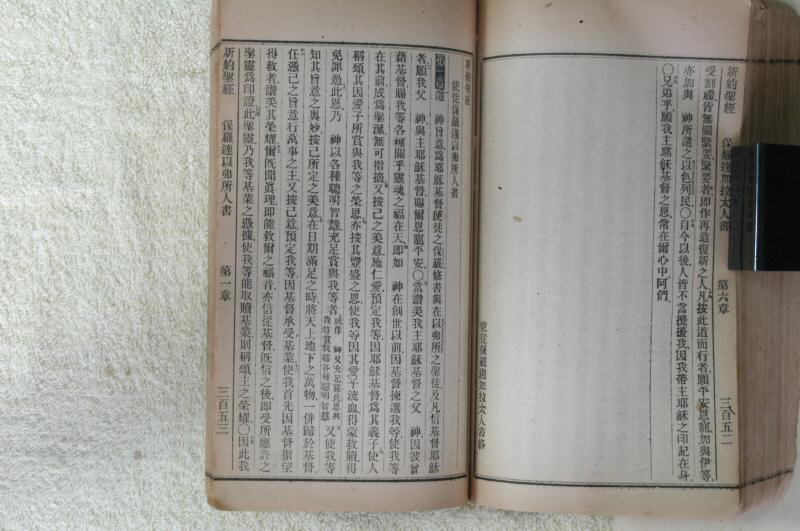 新約聖經　保羅達加拉太人書　第六章　三百五二
受割禮皆無關緊要、緊要者、卽作再造復新之人、凡按此道而行者、願平安恩寵、加與伊等、
亦加與　神所選之以色列民、〇自今以後、人皆不當攪擾我、因我帶主耶穌之印記在身、
〇兄弟乎、願我主耶穌基督之恩、常在爾心中、阿們、
使徒保羅達加拉太人書終
新約聖經
使徒保羅達以弗所人書
第一章遵　神旨意、爲耶穌基督使徒之保羅、修書與在以弗所之聖徒、及凡信基督耶穌
者、願我父　神與主耶穌基督、賜爾恩寵平安、〇當讚美我主耶穌基督之父　神、因彼曾
藉基督、賜我等各種關乎靈魂之福在天、卽如　神在創世以前、因基督揀選我等、使我等
在其前、成爲聖潔、無可指摘、又按己之美意、施仁愛、預定我等、因耶穌基督、爲其義子、使人
稱頌其因愛子所賞與我等之榮恩、亦按其豐盛之恩、使我等因其愛子流血、得蒙救贖、得
免罪過、此恩乃　神以各種聰明智慧、充足賞與我等者、或作　神又充足施此恩與我等賞我等各種聰明智慧　又使我等
知其旨意之奧妙、按己所定之美意、在日期滿足之時、將天上地下之萬物、一併歸於基督、
任憑己之旨意、行萬事之主、又按己意、預定我等、因基督承受基業、使我首先因基督指望
得救者、讚美其榮耀、爾旣聞眞理、卽能救爾之福音、亦信從基督、旣信之後、卽受所應許之
聖靈爲印證、此聖靈、乃我等基業之憑據、使我等能取贖基業、則稱頌主之榮耀、〇因此我
新約聖經　保羅達以弗所人書　第一章　三百五三